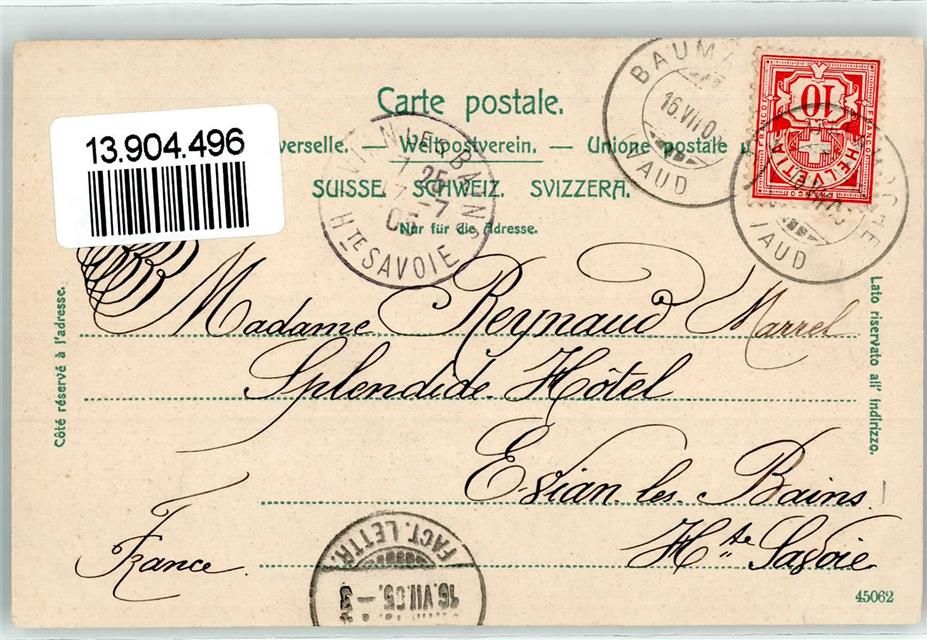 Carte postale.
13.904.496
verselle. — Weltpostverein. — Unione postale u
SUISSE. SCHWEIZ. SVIZZERA.
Nur für die Adresse.
BAUMA
16.VII.0
VAUD
10
FRANCO
HELVETIA
VAUD
LES BAINS
25
7-7
HTE SAVOIE
Côté réservé à l'adresse.
Lato riservato all' indirizzo.
Madame Reynaud Marrel
Splendide Hôtel
Evian les Bains
Hte Savoie
France
FACT. LETTR.
16.VII.05.
45062